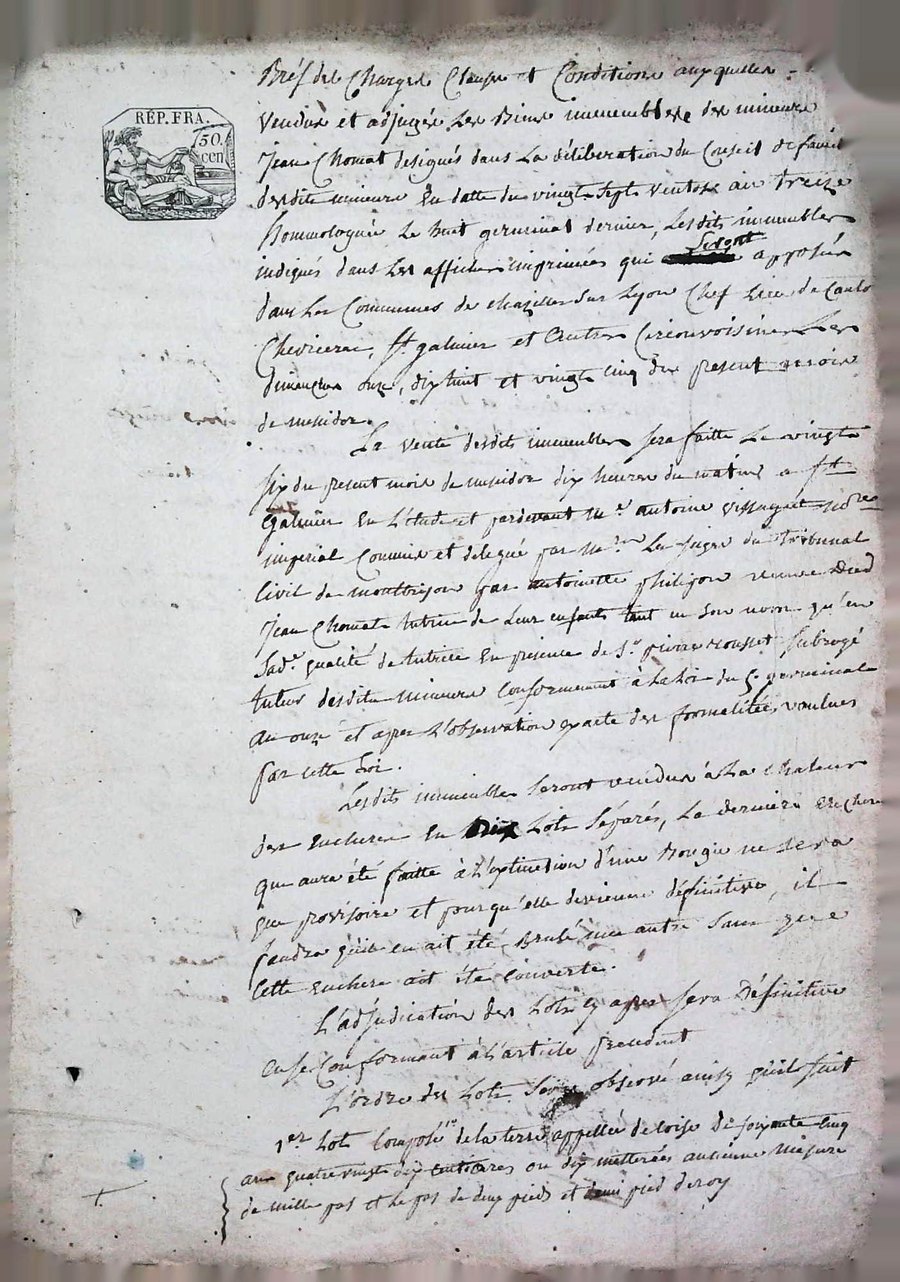 RÉP. FRA.
50.
cen
Bref des Charges Clauses et Conditions auxquelles
vendus et adjugés Les Biens immeubles des mineurs
Jean Chomat designés dans La déliberation du Conseil de famil
desdits mineurs En datte du vingt Sept ventose an treize
hommologuée Le huit germinal dernier, Lesdits immeubles
indiqués dans Les affiches imprimées qui seront apposées
dans Les Communes de chazelles sur Lyon Chef Lieu de Canto
Chevrieres, St. galmier et Autres Circonvoisines Les
dimanches onze, dix huit et vingt cinq du present mois
de messidor.
La vente desdits immeubles sera faitte Le vingt
six du present mois de messidor dix heures du matin a St.
Galmier En L'étude et pardevant Me. antoine notre
imperial Commis et delegué par Mrs. Les Juges du Tribunal
Civil de montbrison par antoinette philipon veuve dud
Jean Chomat tutrice de Leur enfants tant en son nom qu'en
Sade. qualité de tutrice En presence de Sr. pierre Mousset Subrogé
tuteur desdits mineurs Conformement à La Loi du 5 germinal
an onze et apres L'observation exacte des formalitées voulues
par cette Loi.
Lesdits immeubles seront vendus à La chaleur
des Encheres En Lots Séparés, La derniere enchere
que aura été faitte à L'extinction d'une Bougie ne sera
que provisoire et pour qu'elle devienne définitive, il
faudra qu'il en ait été Brulé une autre sans que
Cette enchere ait été couverte.
L'adjudication des Lots cy apres sera Définitive
en se Conformant à L'article precedent
L'ordre des Lots sera observé ainsy qu'il suit
1er. Lot Composé de la terre appellée de coise de soixante cinq
ares quatre vingt dix centiares ou dix metterées ancienne mesure
de mille pas et le pas de deux pieds et demi pied de roy